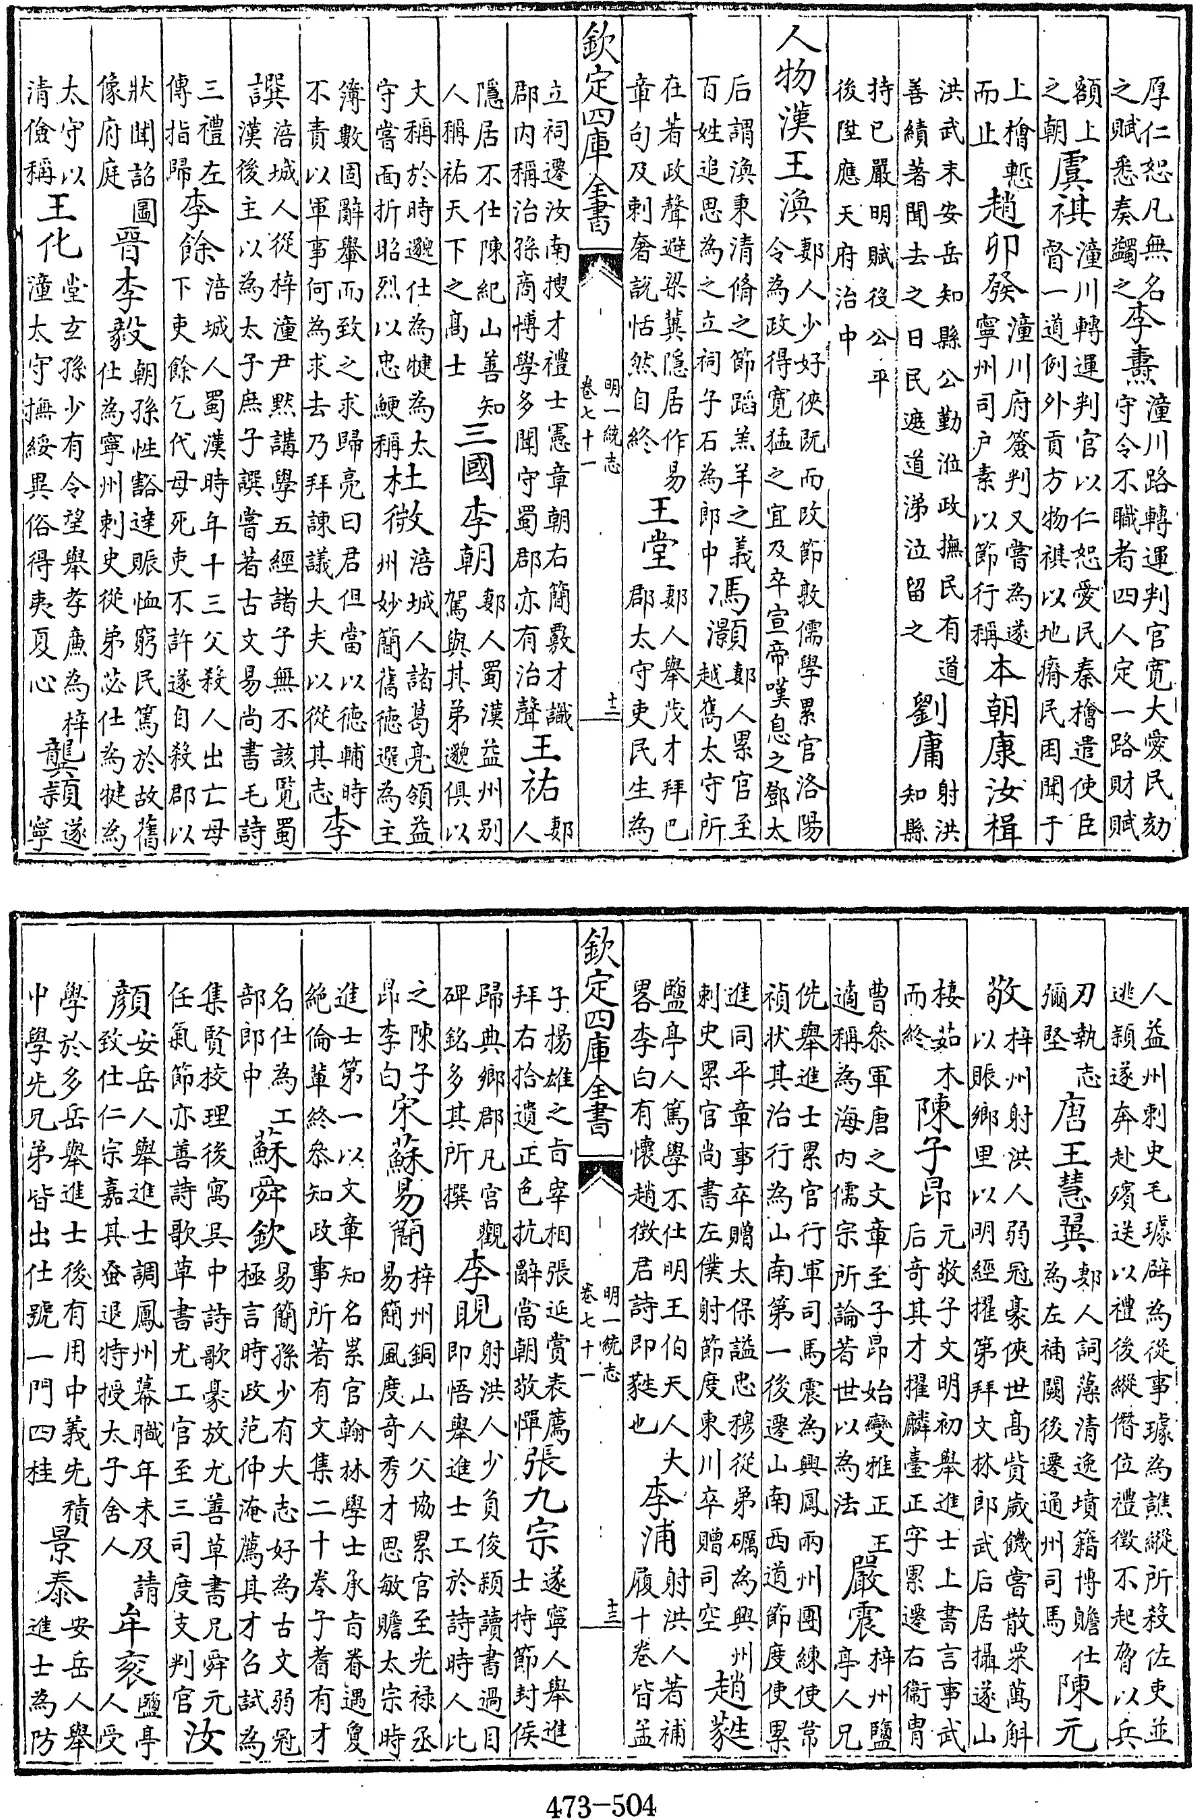 厚仁恕凡無名
之賦悉奏蠲之
李燾
潼川路轉運判官寛大愛民劾
守令不職者四人定一路財賦
額上
之朝
虞祺
潼川轉運判官以仁恕愛民秦檜遣使臣
督一道例外貢方物祺以地瘠民困聞于
上檜慙
而止
趙卯發
潼川府簽判又嘗為遂
寧州司户素以節行稱
本朝康汝楫
洪武末安岳知縣公勤涖政撫民有道
善績著聞去之日民遮道涕泣留之
劉庸
射洪
知縣
持已嚴明賦役公平
後陞應天府治中
人物漢王渙
郪人少好俠既而改節敦儒學累官洛陽
令為政得寛猛之宜及卒宣帝嘆息之鄧太
后謂渙秉清脩之節蹈羔羊之義
百姓追思為之立祠子石為郎中
馮灝
郪人累官至
越嶲太守所
在著政聲避梁冀隱居作易
章句及刺奢說恬然自終
王堂
郪人舉茂才拜巴
郡太守吏民生為
欽定四庫全書
明一統志
卷七十一
十二
立祠遷汝南搜才禮士憲章朝右簡覈才識
郡内稱治孫商博學多聞守蜀郡亦有治聲
王祐
郪
人
隱居不仕陳紀山善知
人稱祐天下之高士
三國李朝
郪人蜀漢益州别
駕與其弟邈俱以
文稱於時邈仕為犍為太
守嘗面折昭烈以忠鯁稱
杜微
涪城人諸葛亮領益
州妙簡舊徳選為主
簿數固辭轝而致之求歸亮曰君但當以徳輔時
不責以軍事何為求去乃拜諫議大夫以從其志
李
譔
涪城人從梓潼尹黙講學五經諸子無不該覧蜀
漢後主以為太子庶子譔嘗著古文易尚書毛詩
三禮左
傳指歸
李餘
涪城人蜀漢時年十三父殺人出亡母
下吏餘乞代母死吏不許遂自殺郡以
狀聞詔圖
像府庭
晉李毅
朝孫性豁達賑恤窮民篤於故舊
仕為寧州刺史從弟苾仕為犍為
太守以
清儉稱
王化
堂玄孫少有令望舉孝亷為梓
潼太守撫綏異俗得夷夏心
龔穎
遂
寧
人益州刺史毛璩辟為從事璩為譙縱所殺佐吏並
逃穎遂奔赴殯送以禮後縱僭位禮徵不起脅以兵
刃執志
彌堅
唐王慧翼
郪人詞藻清逸墳籍博贍仕
為左補闕後遷通州司馬
陳元
敬
梓州射洪人弱冠豪俠世高貲嵗饑嘗散粟萬斛
以賑鄉里以明經擢第拜文林郎武后居攝遂山
棲茹木
而終
陳子昂
元敬子文明初舉進士上書言事武
后奇其才擢麟臺正字累遷右衞冑
曹叅軍唐之文章至子昂始變雅正王
適稱為海内儒宗所論著世以為法
嚴震
梓州鹽
亭人兄
侁舉進士累官行軍司馬震為興鳳兩州團練使常
禎狀其治行為山南第一後遷山南西道節度使累
進同平章事卒贈太保諡忠穆從弟礪為興州
刺史累官尚書左僕射節度東川卒贈司空
趙蕤
鹽亭人篤學不仕明王伯天人大
畧李白有懷趙徵君詩即蕤也
李浦
射洪人著補
履十卷皆孟
欽定四庫全書
明一統志
卷七十一
十三
子揚雄之㫖宰相張延賞表薦
拜右拾遺正色抗辭當朝敬憚
張九宗
遂寧人舉進
士持節封侯
歸典鄉郡凡宫觀
碑銘多其所撰
李晛
射洪人少負俊穎讀書過目
即悟舉進士工於詩時人比
之陳子
昂李白
宋蘇易簡
梓州銅山人父協累官至光禄丞
易簡風度竒秀才思敏贍太宗時
進士第一以文章知名累官翰林學士承㫖眷遇敻
絶倫輩終叅知政事所著有文集二十卷子耆有才
名仕為工
部郎中
蘇舜欽
易簡孫少有大志好為古文弱冠
極言時政范仲淹薦其才召試為
集賢校理後寓呉中詩歌豪放尤善草書兄舜元
任氣節亦善詩歌草書尤工官至三司度支判官
汝
顔
安岳人舉進士調鳳州幕職年未及請
致仕仁宗嘉其恬退特授太子舍人
牟衮
鹽亭
人受
學於多岳舉進士後有用中義先積
中學先兄弟皆出仕號一門四桂
景泰
安岳人舉
進士為防
473-504